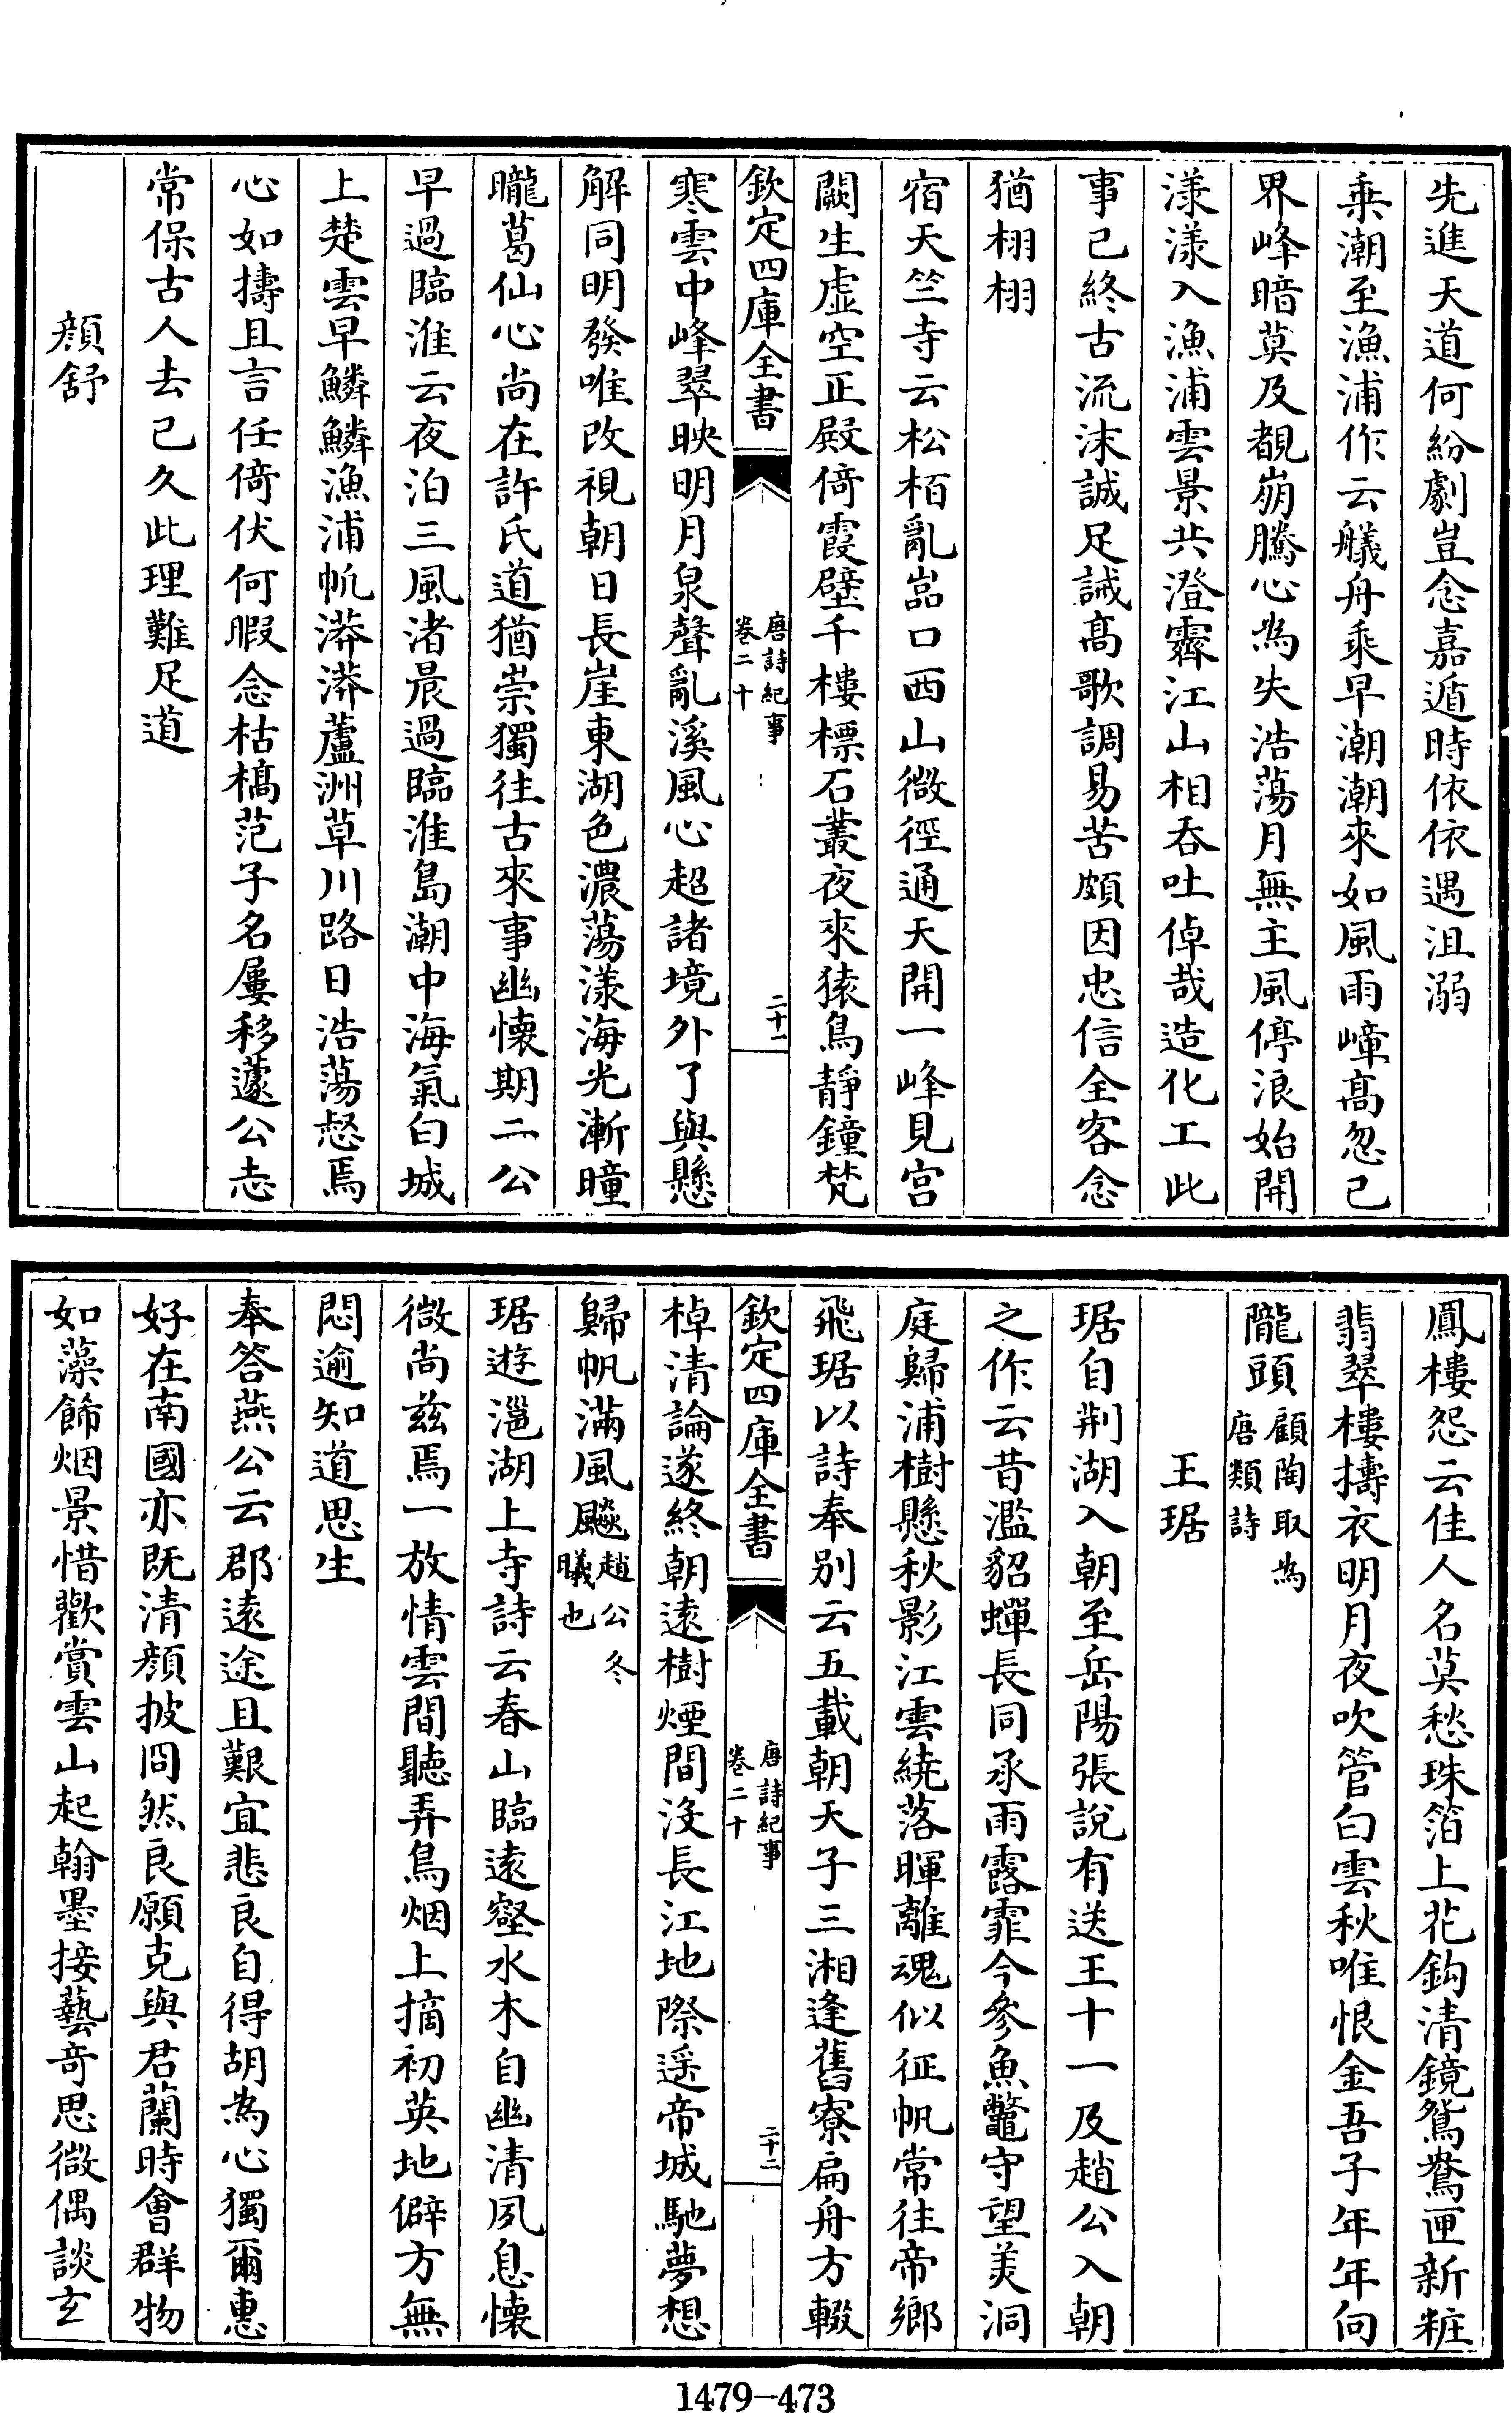 先進天道何紛劇豈念嘉遁時依依遇沮溺
乘潮至漁浦作云艤舟乘早潮潮來如風雨嶂髙忽已
界峰暗莫及覩崩騰心為失浩蕩月無主風停浪始開
漾漾入漁浦雲景共澄霽江山相吞吐倬哉造化工此
事已終古流沫誠足誡髙歌調易苦頗因忠信全客念
猶栩栩
宿天竺寺云松栢亂嵓口西山微徑通天開一峰見宫
闕生虚空正殿倚霞壁千樓標石叢夜來猿鳥靜鐘梵
欽定四庫全書
唐詩紀事
卷二十
二十一
寒雲中峰翠映明月泉聲亂溪風心超諸境外了與懸
解同明發唯改視朝日長崖東湖色濃蕩漾海光漸曈
曨葛仙心尚在許氏道猶崇獨往古來事幽懷期二公
早過臨淮云夜泊三風渚晨過臨淮島潮中海氣白城
上楚雲早鱗鱗漁浦帆漭漭蘆洲草川路日浩蕩惄焉
心如擣且言任倚伏何暇念枯槁范子名屢移蘧公志
常保古人去已久此理難足道
顔舒
鳳樓怨云佳人名莫愁珠箔上花鈎清鏡鴛鴦匣新粧
翡翠樓擣衣明月夜吹管白雲秋唯恨金吾子年年向
隴頭顧陶取為
唐類詩
王琚
琚自荆湖入朝至岳陽張說有送王十一及趙公入朝
之作云昔濫貂蟬長同承雨露霏今參魚鼈守望美洞
庭歸浦樹懸秋影江雲繞落暉離魂似征帆常往帝鄉
飛琚以詩奉别云五載朝天子三湘逢舊寮扁舟方輟
欽定四庫全書
唐詩紀事
卷二十
二十二
棹清論遂終朝遠樹煙間没長江地際遥帝城馳夢想
歸帆滿風飈趙公冬
曦也
琚遊㴩湖上寺詩云春山臨遠壑水木自幽清夙息懷
微尚兹焉一放情雲間聽弄鳥烟上摘初英地僻方無
悶逾知道思生
奉答燕公云郡遠途且艱宜悲良自得胡為心獨爾惠
好在南國亦既清顔披冏然良願克與君蘭時㑹群物
如藻飾烟景惜歡賞雲山起翰墨接藝奇思微偶談玄
1479-473